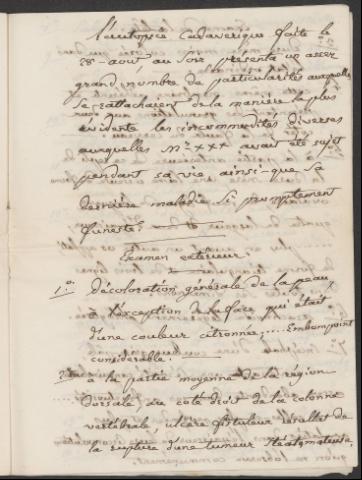 L'autopsie Cadaverique faite le
28 aout au Soir presenta un assez
grand nombre de particularités auxquelles
Se rattacherent de la manière la plus
evidente les incommodités diverses
auxquelles Mr xxx avait eté sujet
pendant sa vie ainsi-que Sa
dernière maladie Si promptement
funeste.
Examen exterieur.
1.° Décoloration générale de la peau,
à l'exception de la face qui était
d'une couleur citronnée.... Embonpoint
considerable.
2.° à la partie moyenne de la région
dorsale, du coté droit de la colonne
vertébrale, ulcère fistuleux résultat de
la rupture d'une tumeur Stéatomateuse,